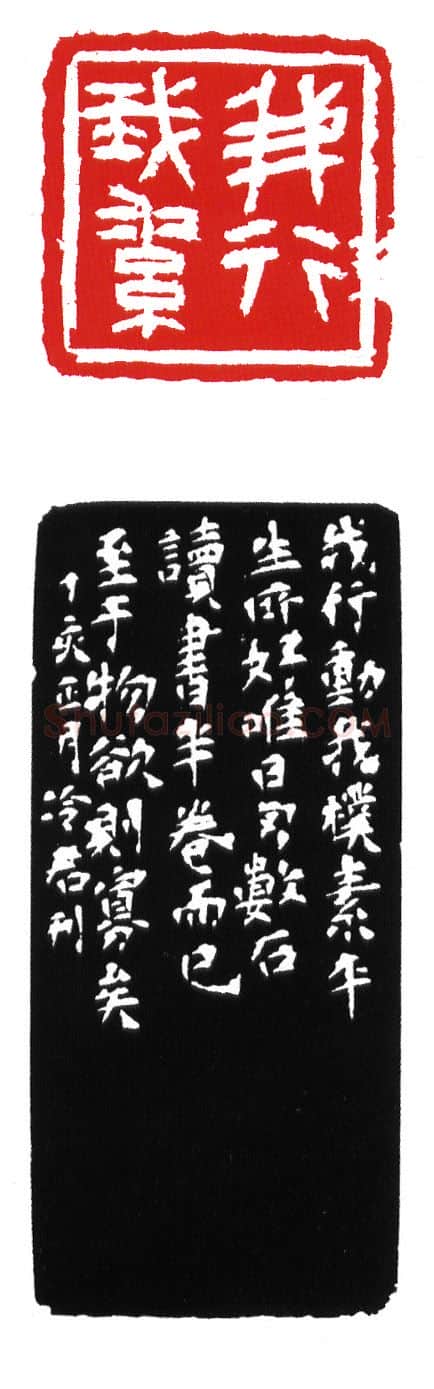 我行
我素
我行動我樸素平
生所好唯日數石
讀書半卷而已
至于物欲則寡矣
丁亥正月冷君刊
Shufaziliao.COM